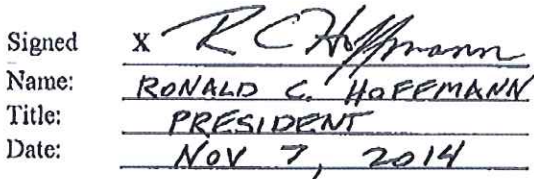 Signed X R C Hoffmann
Name: RONALD C. HOFFMANN
Title: PRESIDENT
Date: NOV 7, 2014